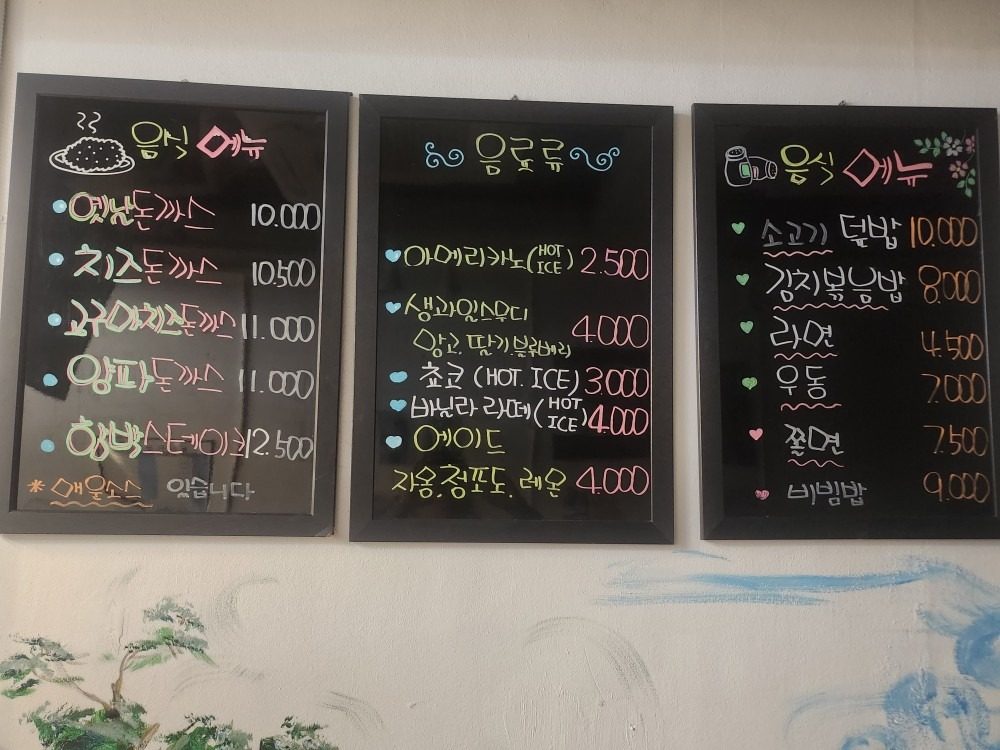 음식 메뉴
옛날돈까스 10.000
치즈돈까스 10.500
고구마치즈돈까스 11.000
양파돈까스 11.000
함박스테이크 12.500
* 매운소스 있습니다
음료류
아메리카노(HOT ICE) 2.500
생과일스무디
망고, 딸기, 블루베리 4.000
쵸코 (HOT. ICE) 3000
바닐라 라떼(HOT ICE) 4.000
에이드
자몽, 청포도, 레몬 4.000
음식 메뉴
소고기 덮밥 10.000
김치볶음밥 8.000
라면 4.500
우동 7.000
쫄면 7.500
비빔밥 9.000